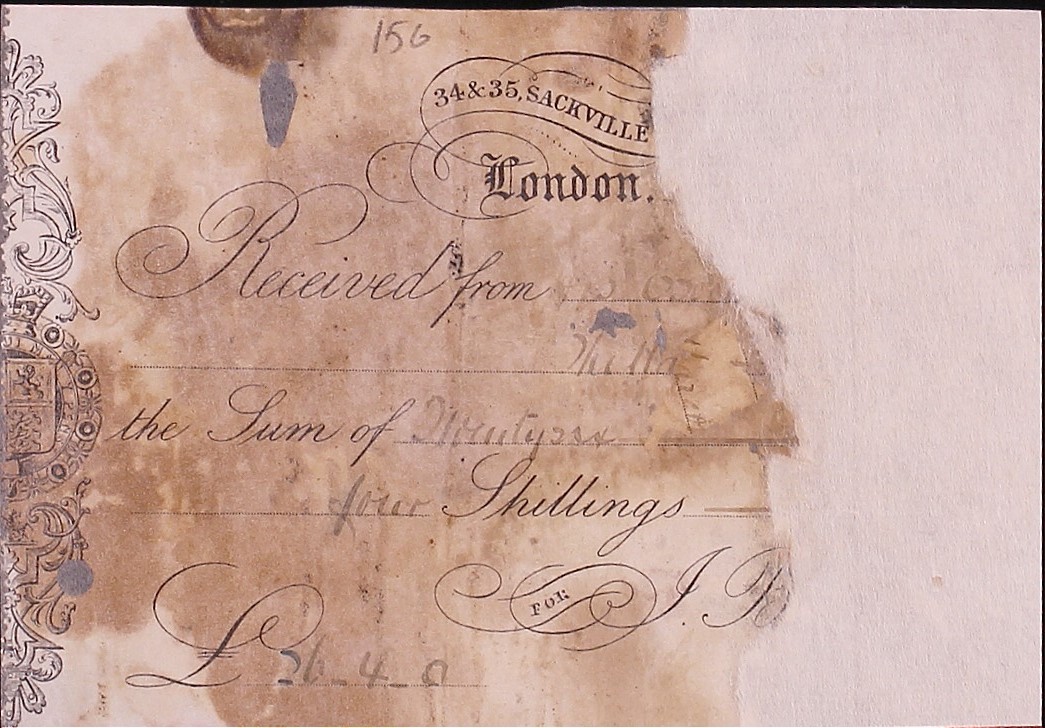 156
34 & 35, SACKVILLE
London.
Received from
the Sum of Twentysix
four Shillings
FOR J.
£ 26_4_0